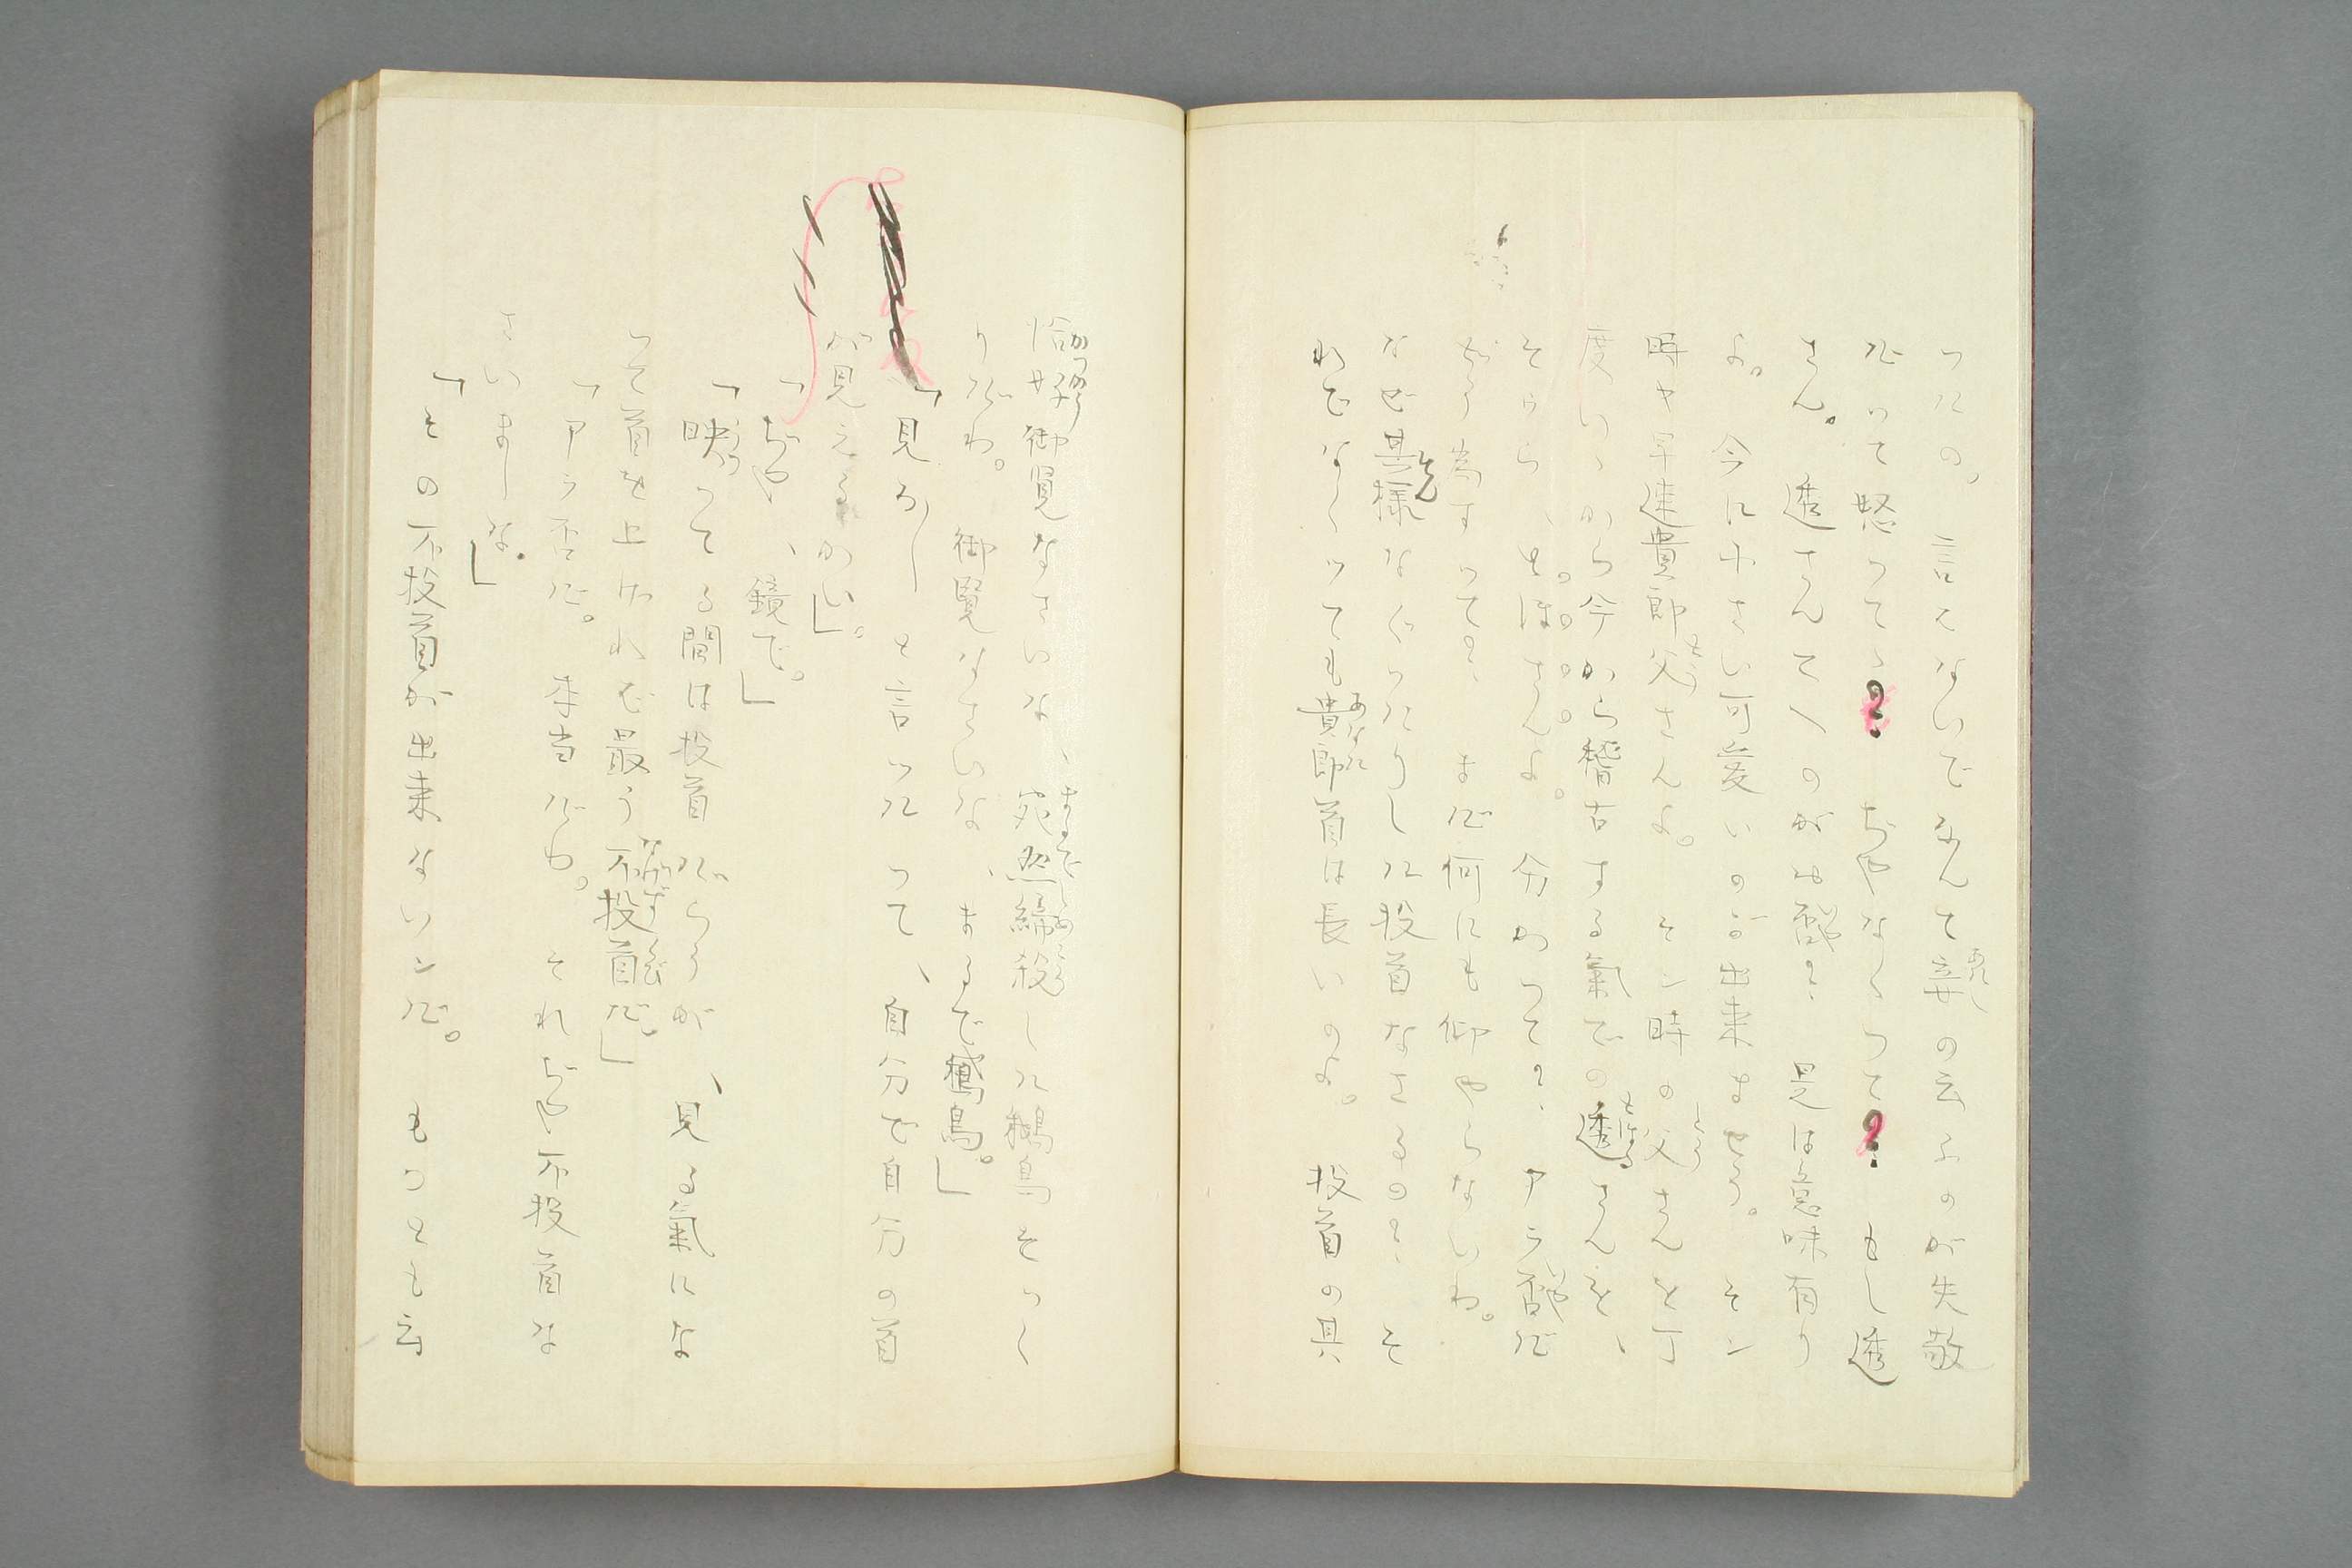 つたの。言へないでなんて妾の云ふのが失敬
だつて怒つて?ぢやなくつて?もし透
さん。透さんてへのがお否?是は意味有り
よ。今に小さい可愛いのが出来ませう。そン
時ヤ早速貴郎父さんよ。そン時の父さんを丁
度いゝから今から稽古する氣での透さんを、
そウら、とほさんよ。分かつて?、アラ否だ
どう為すつて?、まだ何にも仰やらないわ。
なぜ其様なぐつたりした投首なさるの?、そ
れでなくツても貴郎首は長いのよ。投首の具
恰好御覧なさいな、宛然締殺した鵝鳥そつく
りだわ。御覧なさいな、まるで鵝鳥。」
「見ろしと言つたつて、自分で自分の首
が見えるかい」。
「ぢや、鏡で。」
「映つてる間は投首だらうが、見る氣にな
つて首を上げれば最う不投首だ」
「アラ否だ。本当だわ。それぢや不投首な
さいましな。」
「その不投首が出来ないンだ。もつとも云